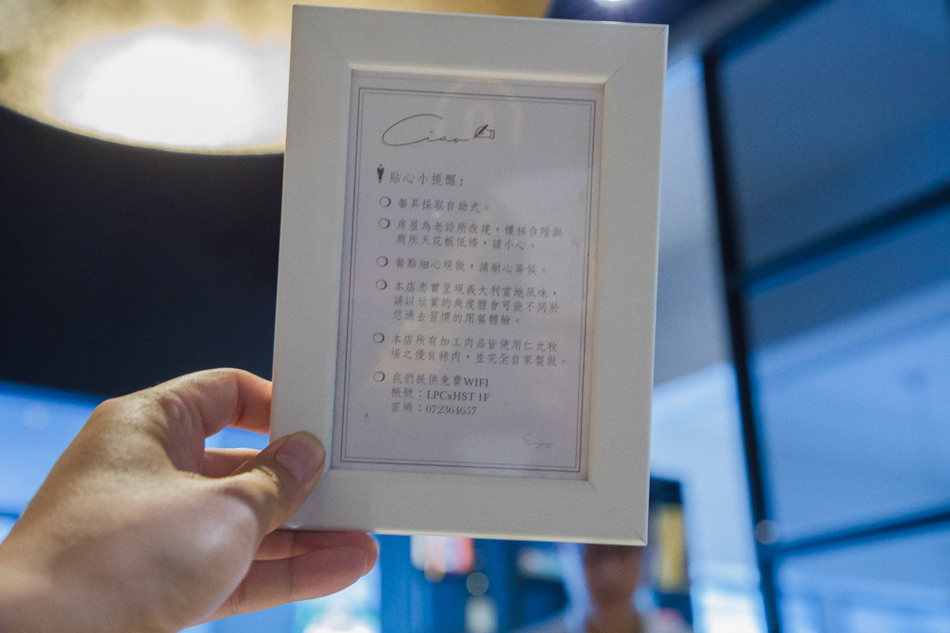 Ciao
貼心小提醒：
餐具採取自助式。
房屋為老診所改建，樓梯台階與
廁所天花板低矮，請小心。
餐點細心現做，請耐心等候。
本店忠實呈現義大利當地風味，
請以欣賞的角度體會可能不同於
您過去習慣的用餐體驗。
本店所有加工肉品皆使用仁允牧
場之優良豬肉，並完全自家製做。
我們提供免費WIFI
帳號：LPCxHST 1F
密碼：072364657
Enjoy